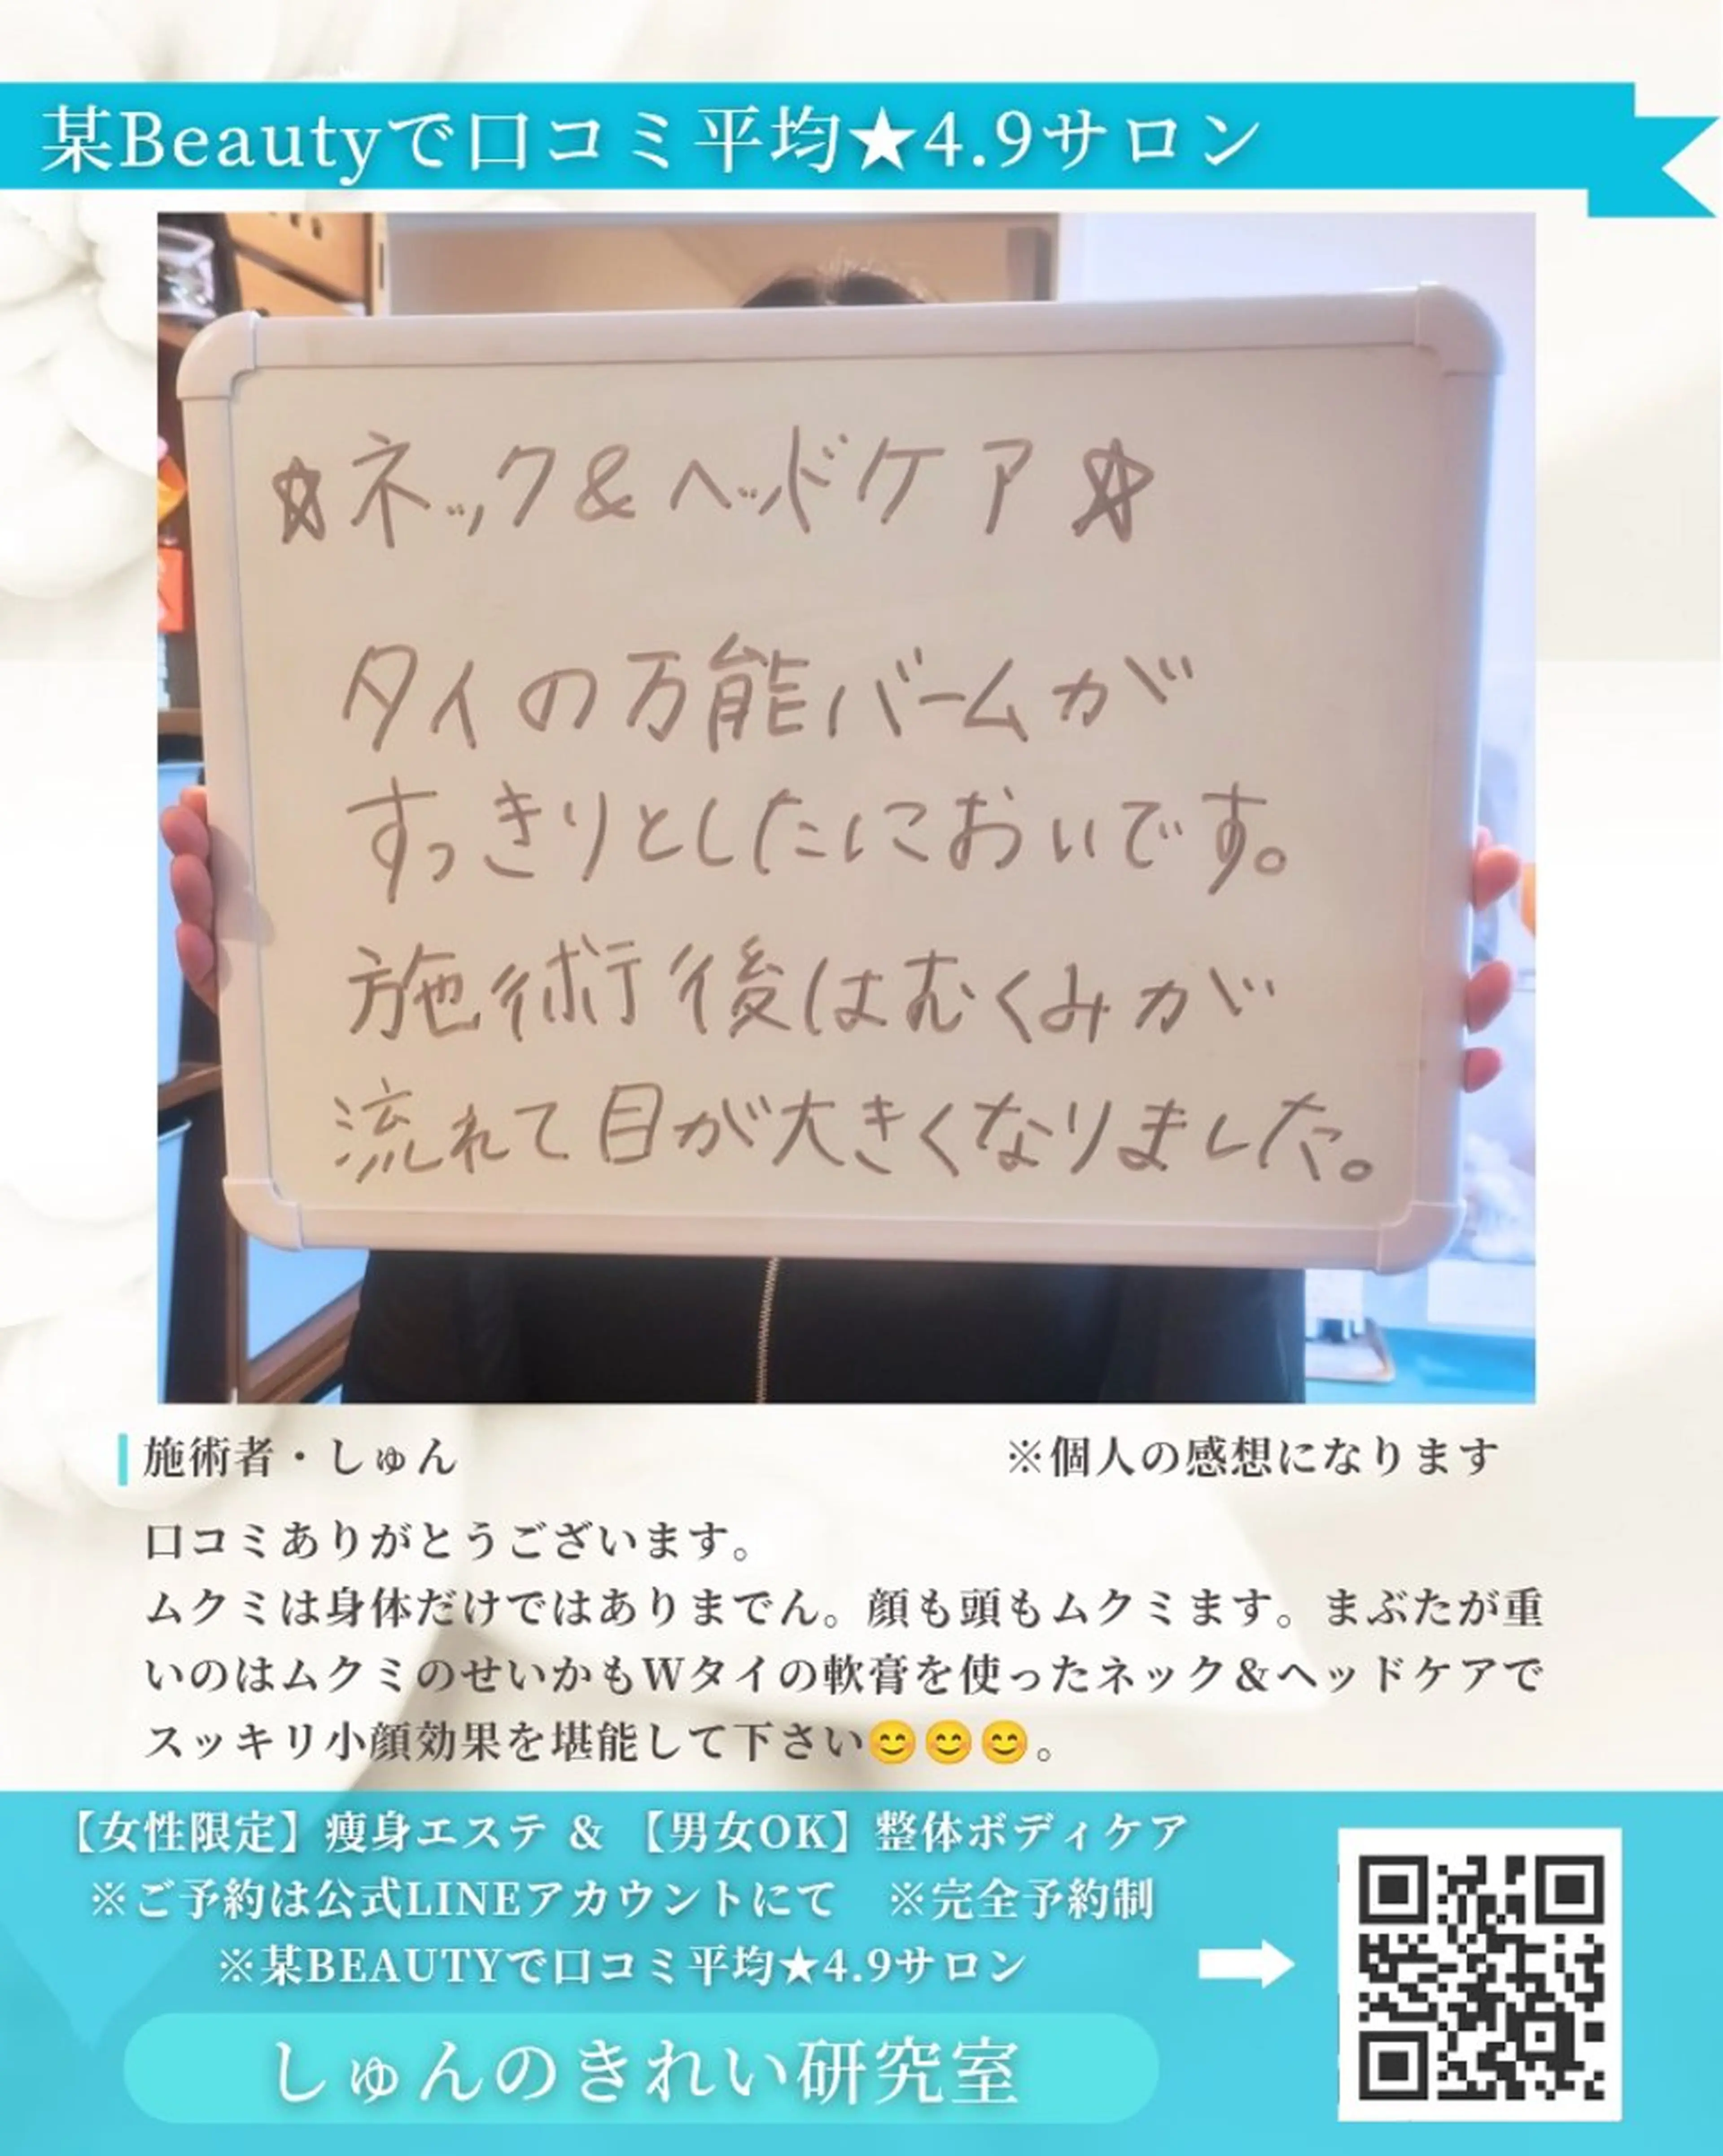 某Beautyで口コミ平均★4.9サロン
☆ネック&ヘッドケア☆
タイの万能バームが
すっきりとしたにおいです。
施術後はむくみが
流れて目が大きくなりました。
施術者・しゅん
※個人の感想になります
口コミありがとうございます。
ムクミは身体だけではありまでん。顔も頭もムクミます。まぶたが重
いのはムクミのせいかもWタイの軟膏を使ったネック&ヘッドケアで
スッキリ小顔効果を堪能して下さい😊😊😊。
【女性限定】痩身エステ & 【男女OK】整体ボディケア
※ご予約は公式LINEアカウントにて　※完全予約制
※某BEAUTYで口コミ平均★4.9サロン
しゅんのきれい研究室